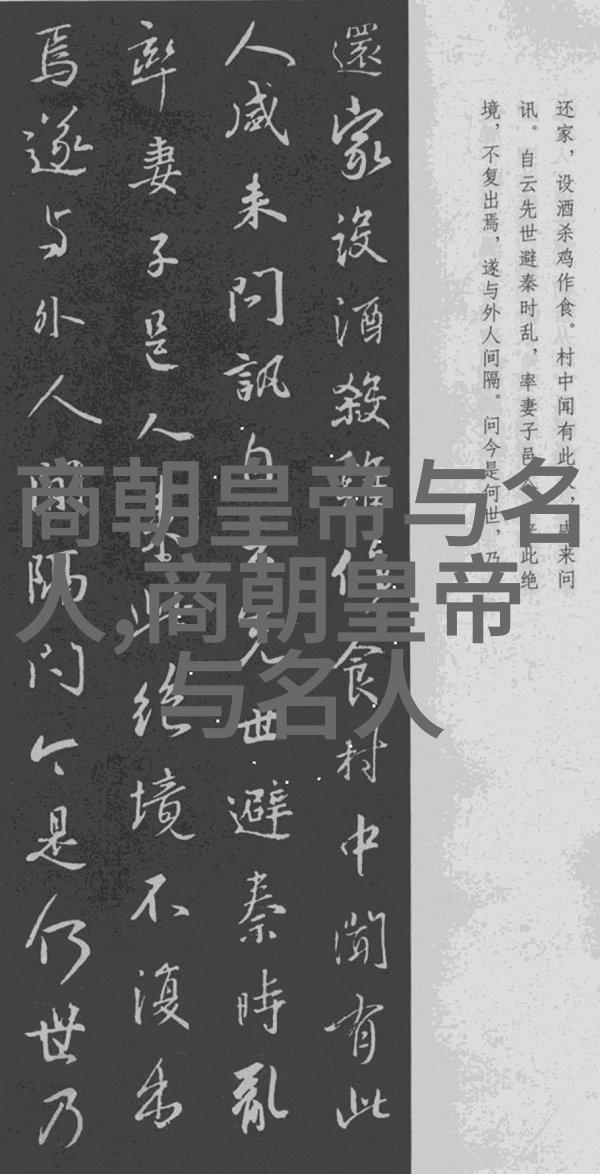 还家，设酒杀鸡作食。村中闻有此人，咸来问
讯。自云先世避秦时乱，率妻子邑人来此绝
境，不复出焉，遂与外人间隔。问今是何世，乃
還家設酒殺雞作食村中聞有此
人咸来問訊自云先世避秦時亂
率妻子邑人来此絶境不復出
焉遂与外人間隔問今是何世乃
商朝皇帝与名
人,商朝皇帝
与名人